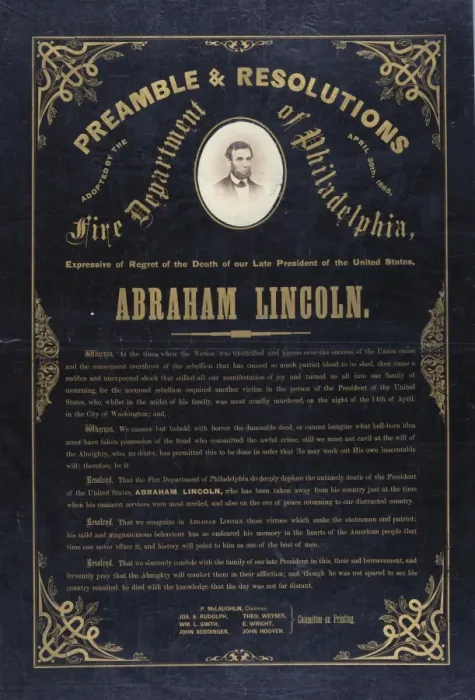 PREAMBLE & RESOLUTIONS
ADOPTED BY THE
Fire Department of Philadelphia,
APRIL 20th, 1865,
Expressive of Regret of the Death of our Late President of the United States,
ABRAHAM LINCOLN.
Whereas, At the time when the Nation was electrified and joyous over the success of the Union cause
and the consequent overthrow of the rebellion that has caused so much patriot blood to be shed, then came a
sudden and unexpected shock that stilled all our manifestation of joy and turned us all into one family of
mourning, for the accursed rebellion required another victim, in the person of the President of the United
States, who, whilst in the midst of his family, was most cruelly murdered, on the night of the 14th of April,
in the City of Washington; and,
Whereas, We cannot but behold with horror the damnable deed, or cannot imagine what hell-born idea
must have taken possession of the fiend who committed the awful crime, still we must not cavil at the will of
the Almighty, who, no doubt, has permitted this to be done in order that He may work out His own inscrutable
will; therefore, be it
Resolved, That the Fire Department of Philadelphia do deeply deplore the untimely death of the President
of the United States, ABRAHAM LINCOLN, who has been taken away from his country just at the time
when his eminent services were most needed, and also on the eve of peace returning to our distracted country.
Resolved, That we recognize in ABRAHAM LINCOLN those virtues which make the statesman and patriot;
his mild and magnanimous behaviour has so endeared his memory in the hearts of the American people that
time can never efface it, and history will point to him as one of the best of men.
Resolved, That we sincerely condole with the family of our late President in this, their sad bereavement, and
fervently pray that the Almighty will comfort them in their affliction; and though he was not spared to see his
country reunited, he died with the knowledge that the day was not far distant.
P. McLAUGHLIN, Chairman,
JOS. S. RUDOLPH, THEO. WEYSER,
WM. L. SMITH, E. WRIGHT,
JOHN SEIDINGER, JOHN HOOVER.
Committee on Printing.